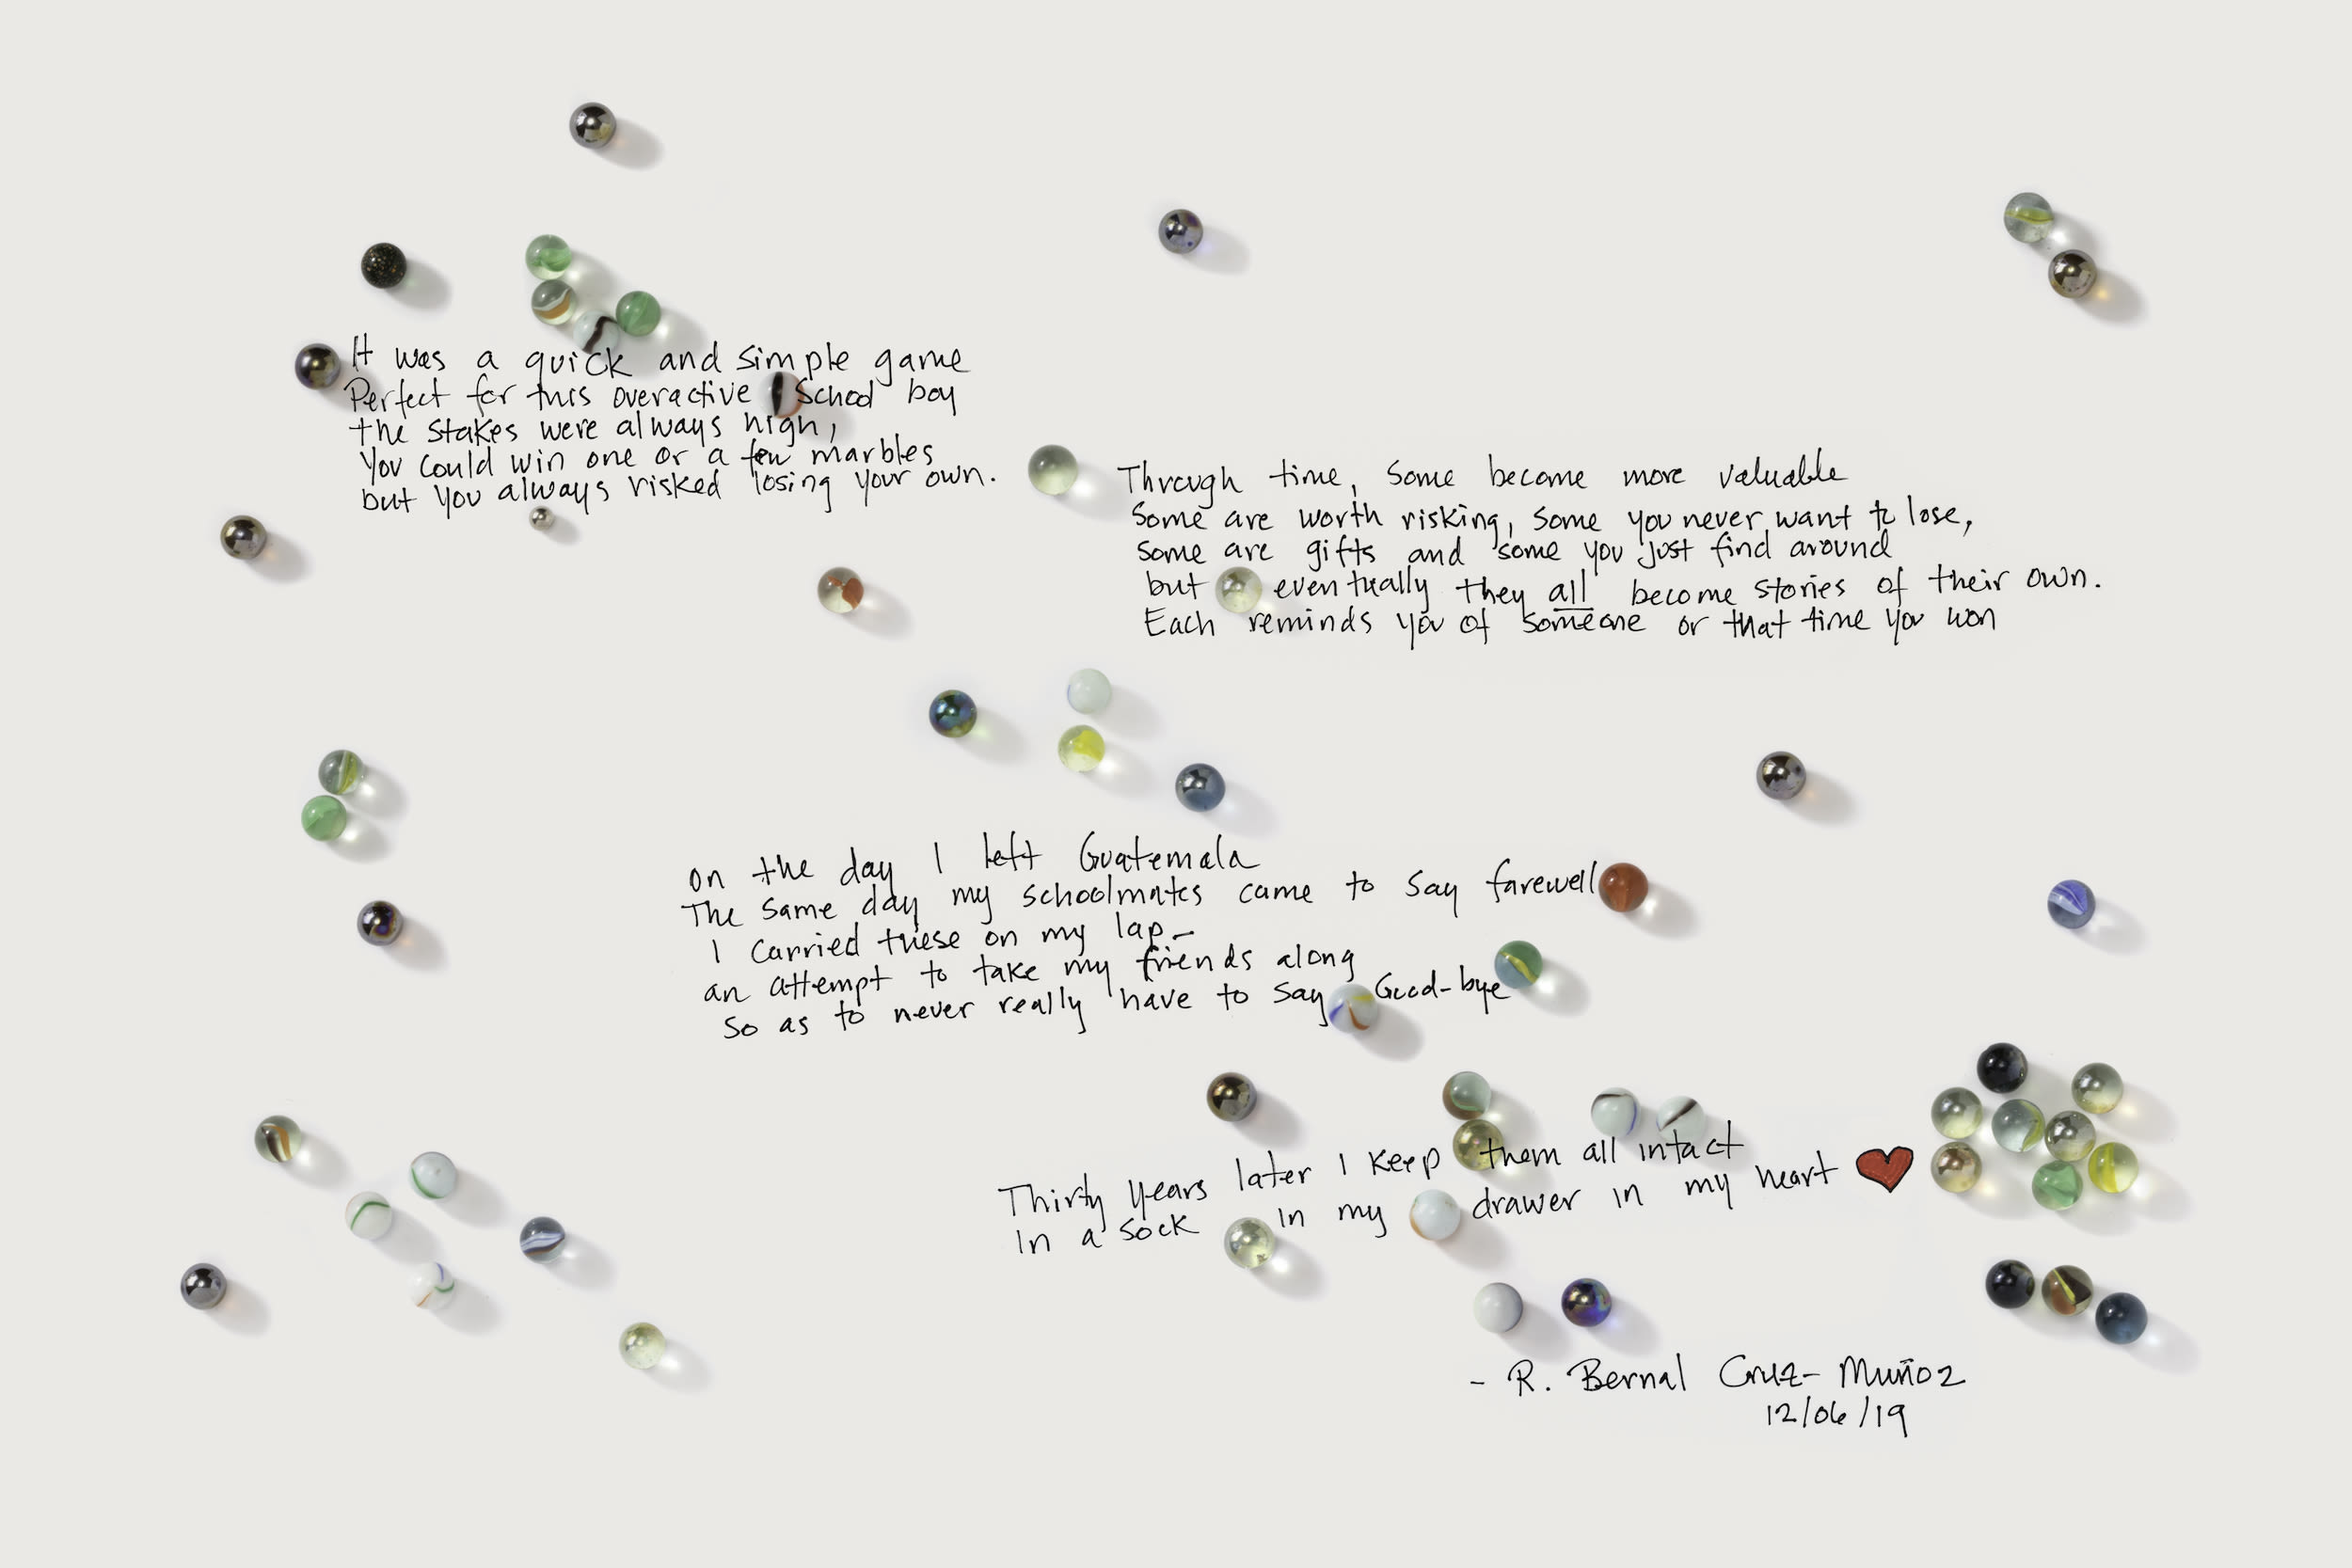 It was a quick and simple game
Perfect for this overactive School boy
the stakes were always high,
You could win one or a few marbles
but you always risked losing your own.
Through time, Some become more valuable
Some are worth risking, Some you never want to lose,
Some are gifts and some you just find around
but eventually they all become stories of their own.
Each reminds you of someone or that time you won
On the day I left Guatemala
The same day my schoolmates came to say farewell
I carried these on my lap-
an attempt to take my friends along
So as to never really have to say Good-bye
Thirty years later I keep them all intact
In a sock in my drawer in my heart
- R. Bernal Cruz-Muñoz
12/06/19